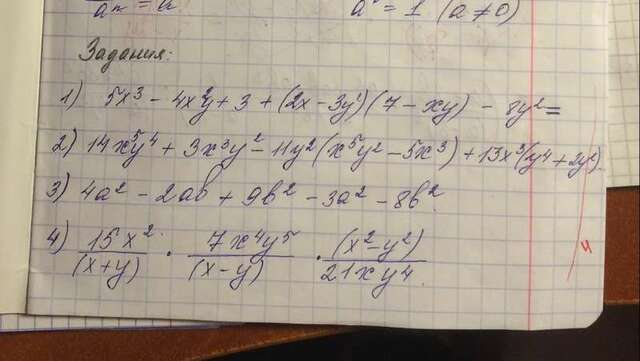 a⁰ = 1 (a ≠ 0)
Задания:
1) 5x³ - 4x²y + 3 + (2x - 3y)(7 - xy) - 8y² =
2) 14x⁵y⁴ + 3x³y² - 11y²(x⁵y² - 5x³) + 13x³(y⁴ + 2y²)
3) 4a² - 2ab + 9b² - 3a² - 8b²
4) 15x²/(x+y) · 7x⁴y⁵/(x-y) · (x²-y²)/21xy⁴